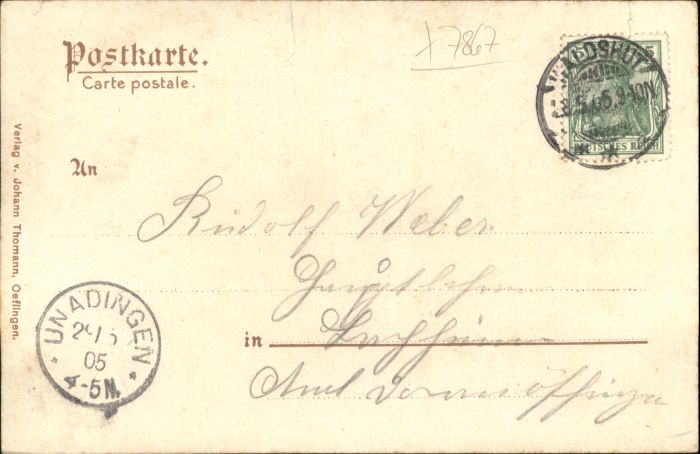 Postkarte.
Carte postale.
x 7867
5 5
WALDSHUT
5.05.9-10N
DEUTSCHES REICH
Verlag v. Johann Thomann, Oeflingen.
An
Rudolf Weber
Hauptlehrer
in
Amt Donaueschingen
UNADINGEN
29 5
05
4-5N.